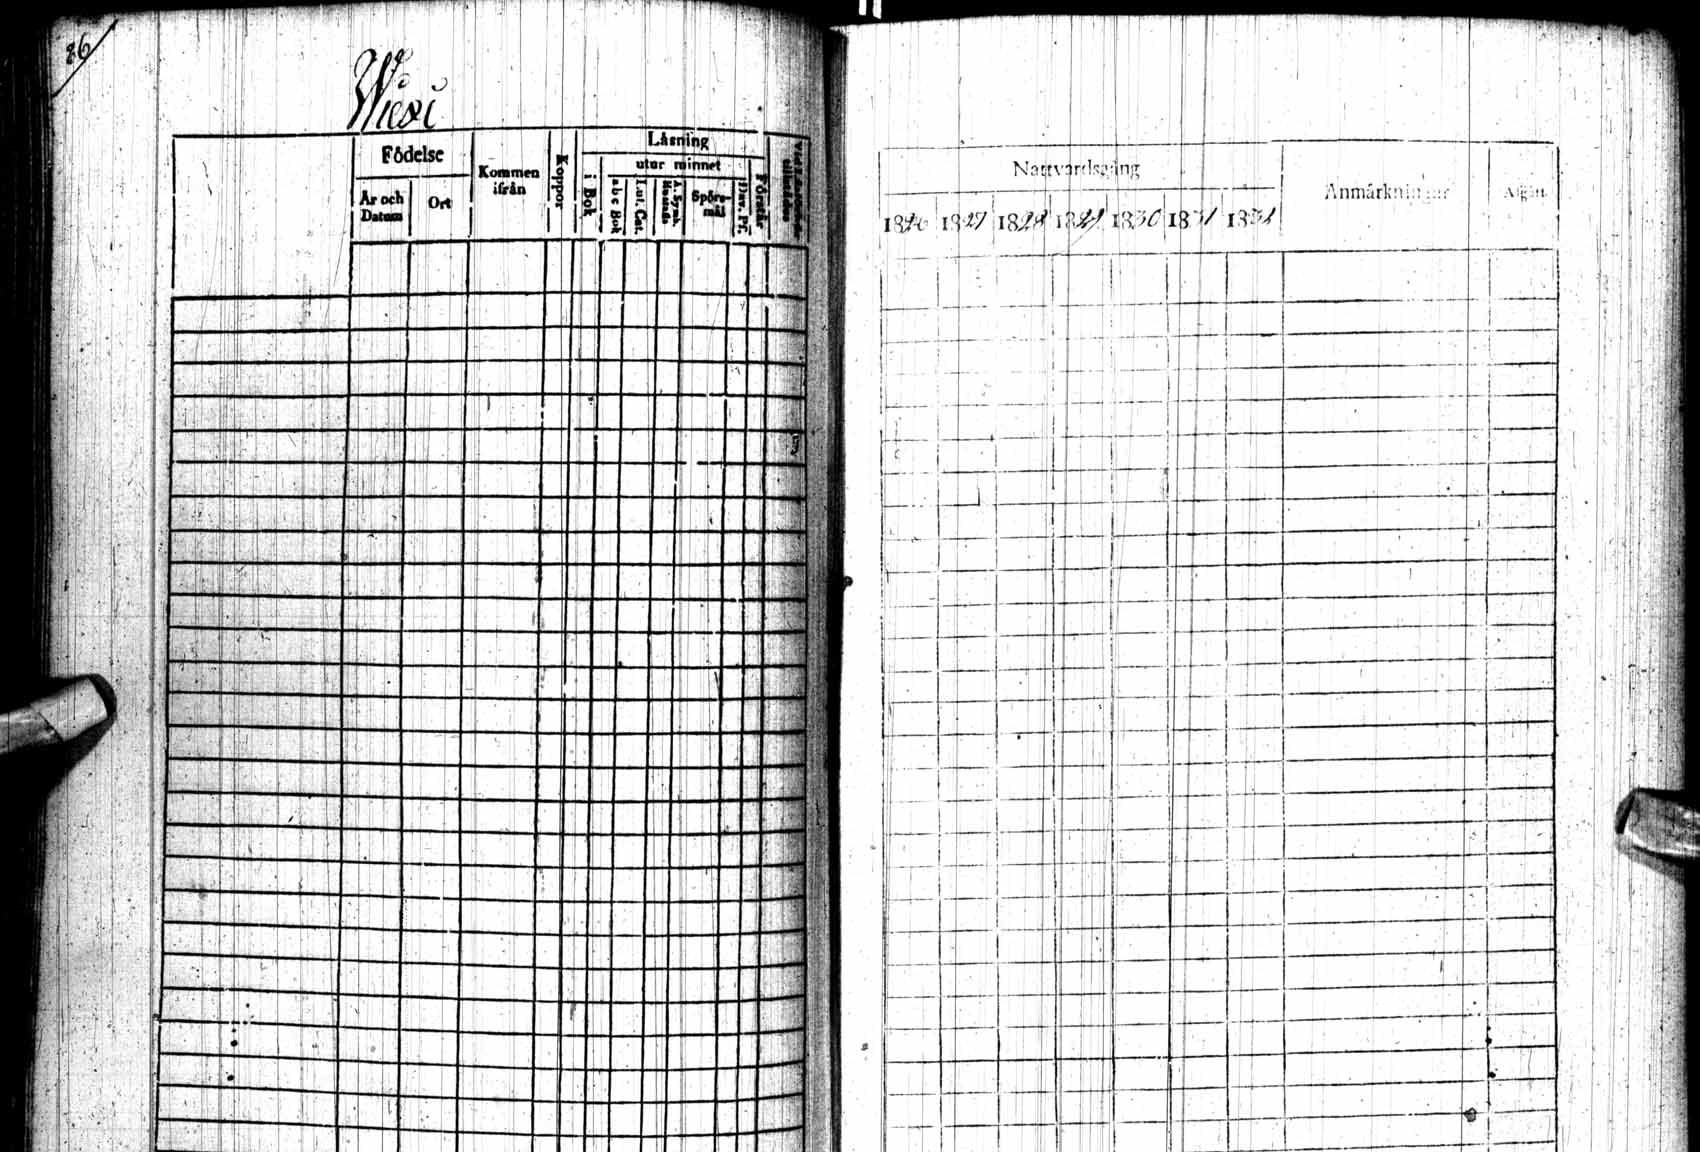 86
Födelse
År och Datum
Ort
Kommen ifrån
Koppor
Läsning
i Bok
utur minnet
a b c Bok
Lut. Cat.
Spörs-mål
Dav. Ps.
Förstår
Nattvardsgång
1826 1827 1828 1829 1830 1831 1832
Anmärkningar
Afgått